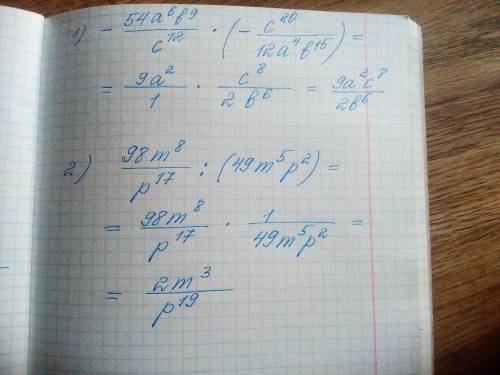 1) - 54a⁶в⁹/c¹² · (- c²⁰/12a⁴в¹⁵) =
= 9a²/1 · c⁸/2в⁶ = 9a²c⁸/2в⁶
2) 98m⁸/p¹⁷ : (49m⁵p²) =
= 98m⁸/p¹⁷ · 1/49m⁵p² =
= 2m³/p¹⁹